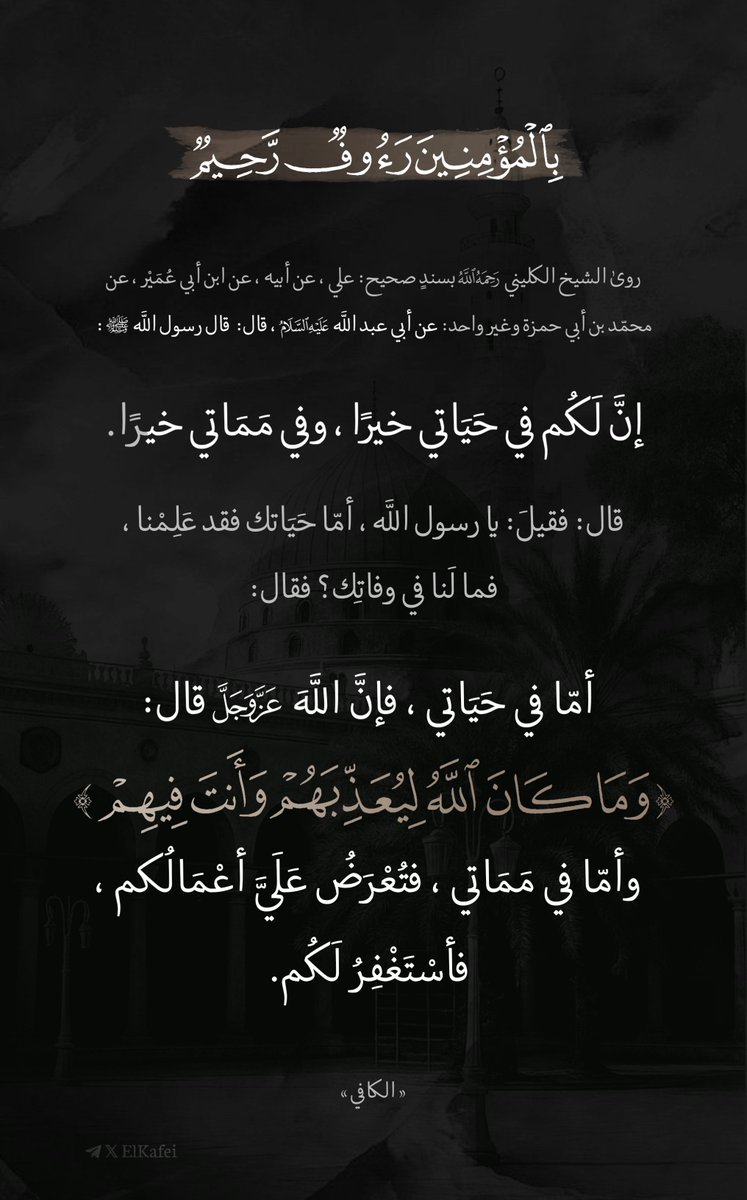 بِٱلْمُؤْمِنِينَ رَءُوفٌ رَّحِيمٌ
روىٰ الشيخ الكليني رَحِمَهُ ٱللَّهُ بسندٍ صحيح: علي ، عن أبيه ، عن ابن أبي عُمَيْر ، عن
محمّد بن أبي حمزة وغير واحد: عن أبي عبد اللَّه عَلَيْهِ ٱلسَّلَامُ ، قال: قال رسول اللَّه ﷺ :
إنَّ لَكُم في حَيَاتي خيرًا ، وفي مَمَاتي خيرًا.
قال: فقيلَ: يا رسول اللَّه ، أمّا حَيَاتك فقد عَلِمْنا ،
فما لَنا في وفاتِك؟ فقال:
أمّا في حَيَاتي ، فإنَّ اللَّهَ عَزَّوَجَلَّ قال:
﴿وَمَا كَانَ ٱللَّهُ لِيُعَذِّبَهُمْ وَأَنتَ فِيهِمْ﴾
وأمّا في مَمَاتي ، فتُعْرَضُ عَلَيَّ أعْمَالُكم ،
فأسْتَغْفِرُ لَكُم.
«الكافي»
𝕏 ElKafei